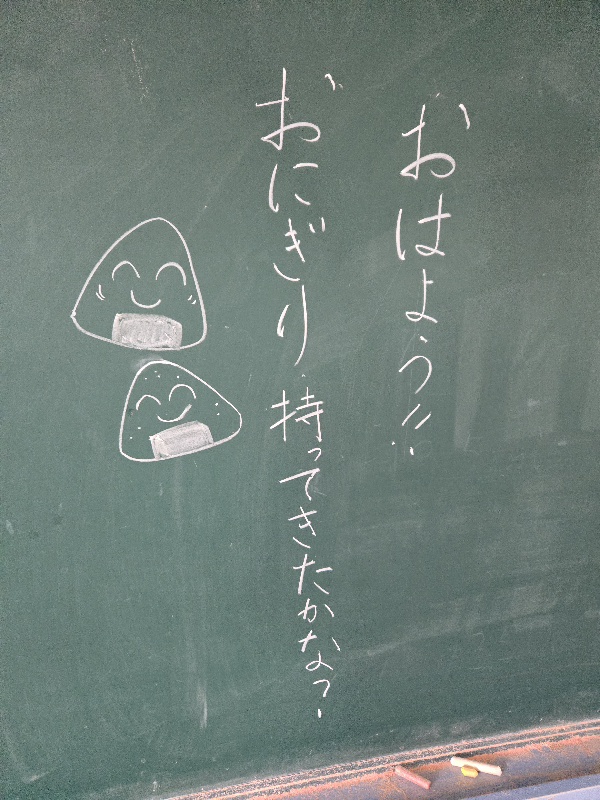 おはよう!!
おにぎり持ってきたかな?